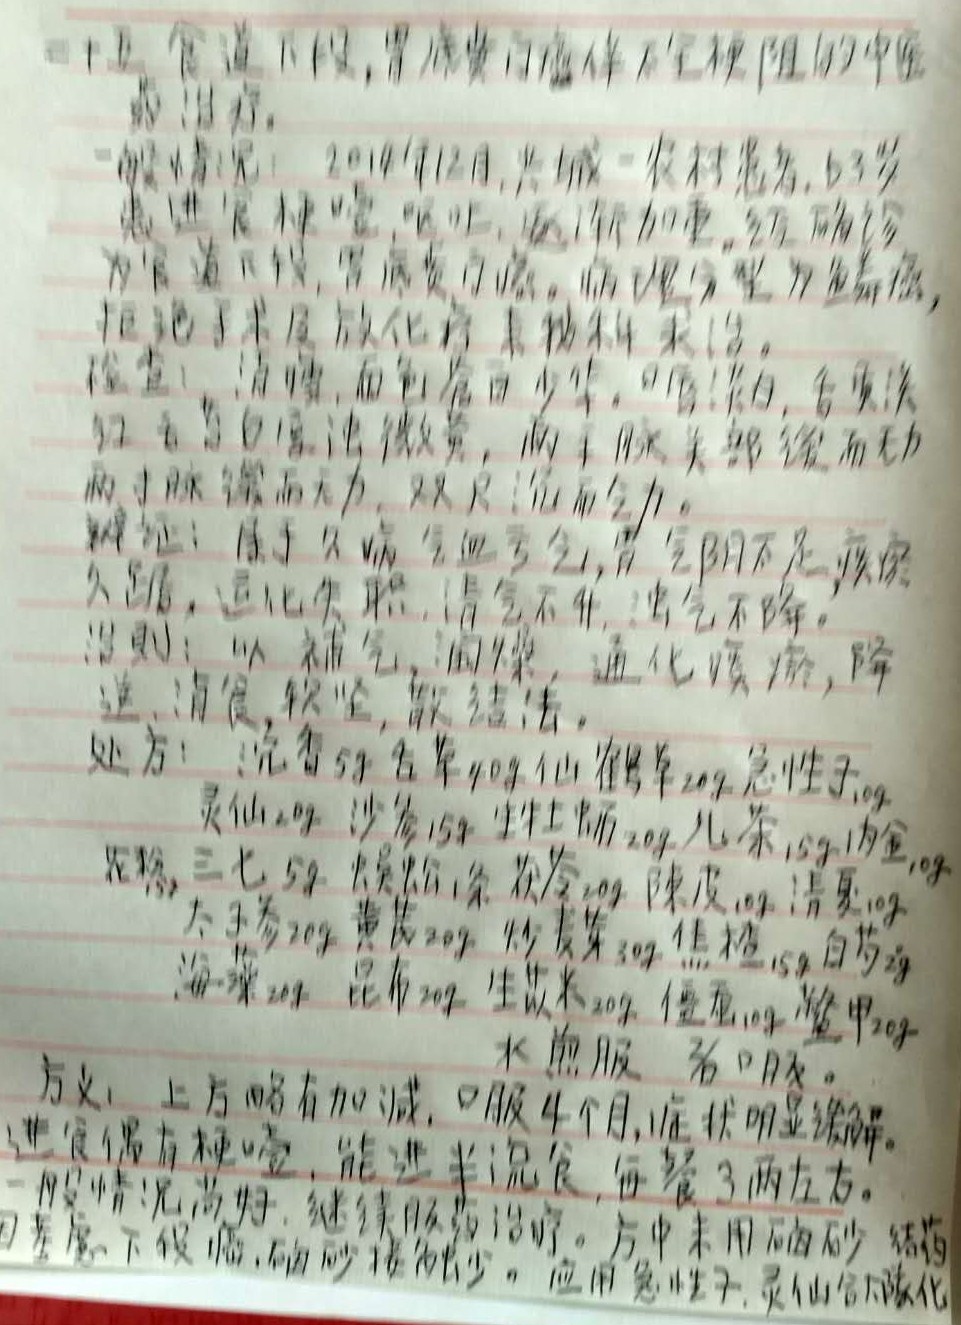 二十五 食道下段,胃底贲门癌伴不全梗阻的中医
药治疗。
一般情况: 2014年12月,兴城一农村患者,63岁
患进食梗噎,呕吐,逐渐加重。经确诊
为食道下段,胃底贲门癌。病理分型为鳞癌,
拒绝手术及放化疗来我科求治。
检查: 消瘦,面色苍白少华。口唇淡白,舌质淡
红舌苔白厚浊微黄,两手脉关部缓而无力
两寸脉缓而无力,双尺沉而乏力。
辨证: 属于久病气血亏乏,胃气阴不足,痰瘀
久踞,运化失职,清气不升,浊气不降。
治则: 以補气,润燥,通化痰瘀,降
逆,消食,软坚,散结法。
处方: 沉香5g 40g仙鹤草20g急性子10g
灵仙20g 沙参15g 生牡蛎20g 儿茶15g内金10g
15g 三七5g 蜈蚣1条 茯苓20g 陳皮10g清夏10g
太子参20g 黄芪20g 炒麦芽30g焦楂15g白芍
海藻20g 昆布20g 生苡米20g 僵蚕10g鳖甲20g
水煎服
方义: 上方略有加减,口服4个月,症状明显缓解。
进食偶有梗噎,能进半流食,每餐3两左右。
一般情况尚好,继续服药治疗。方中未用硇砂
因下段癌,硇砂接触少。应用急性子,灵仙